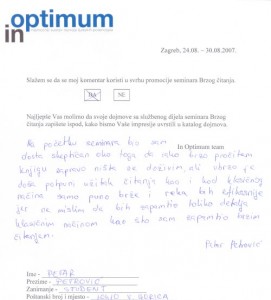 optimum
in
Zagreb, 24.08. – 30.08.2007.
Slažem se da se moj komentar koristi u svrhu promocije seminara Brzog čitanja.
DA NE
Najljepše Vas molimo da svoje dojmove sa službenog dijela seminara Brzog
čitanja zapišete ispod, kako bismo Vaše impresije uvrstili u katalog dojmova.
In Optimum team
Na početku seminara bio sam
dosta skeptičan oko toga da ako brzo pročitam
knjigu zapravo ništa se doživim, ali ubrzo je
došao potpuni užitak čitanja kao i kod klasičnog
načina samo puno brže i
jer ne mislim da bih zapamtio toliko detalja
klasičnim načinom kao što sam zapamtio brzim
čitanjem.
Petar Petrović
Ime - PETAR
Prezime - PETROVIĆ
Zanimanje - STUDENT
Poštanski broj i mjesto - GORICA